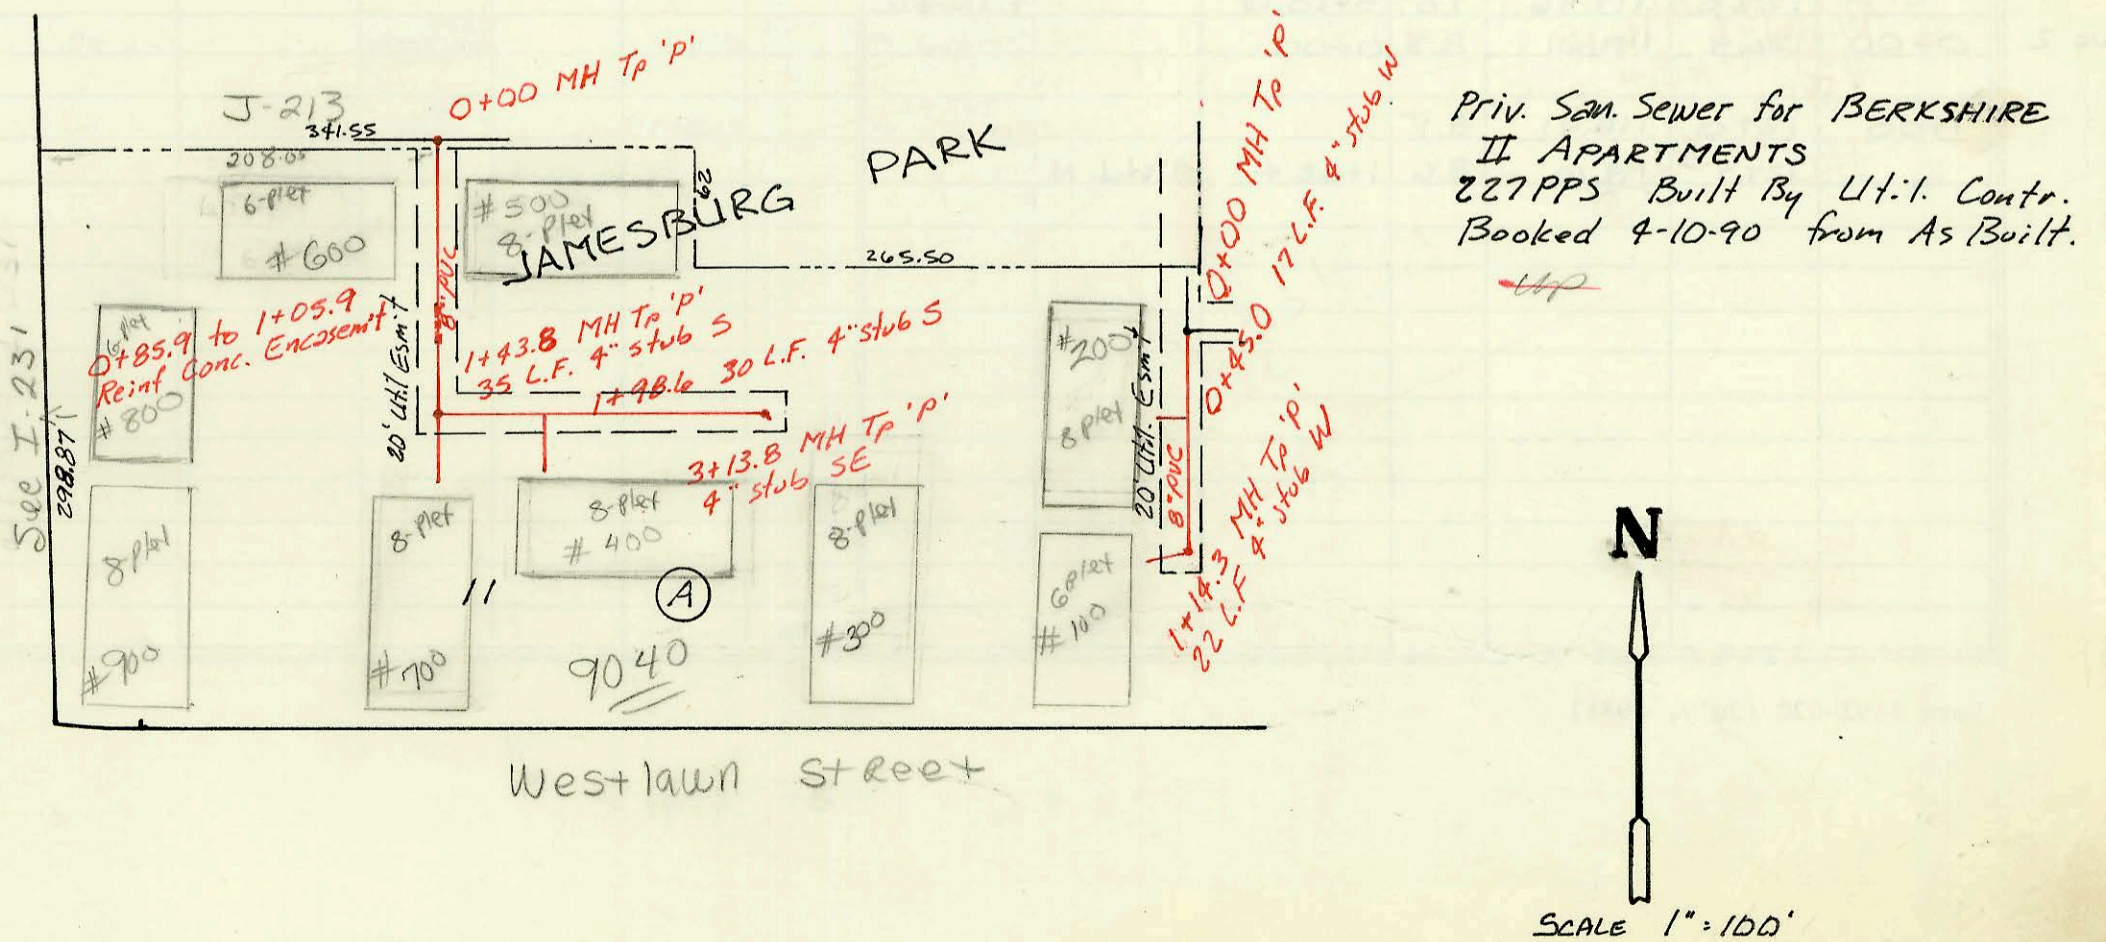 0+00 MH Tp 'P'
J-213
341.55
208.05
6-plet
#600
#500
8-plet
62
JAMESBURG PARK
265.50
0+00 MH Tp 'P'
0+45.0 17 L.F. 4" stub W
Priv. San. Sewer for BERKSHIRE
II APARTMENTS
227PPS Built By Util. Contr.
Booked 4-10-90 from As Built.
See I-231
298.87'
6-plet
#800
0+85.9 to 1+05.9
Reinf Conc. Encasem't
20' Util Esm't
8" PVC
1+43.8 MH Tp 'P'
35 L.F. 4" stub S
1+98.6 30 L.F. 4" stub S
3+13.8 MH Tp 'P'
4" stub SE
#200
8plet
20' Util. Esm't
8" PVC
1+14.3 MH Tp 'P'
22 L.F 4" stub W
8-plet
#900
8-plet
#700
11
8-plet
# 400
A
9040
8-plet
#300
6plet
#100
Westlawn Street
N
SCALE 1":100'